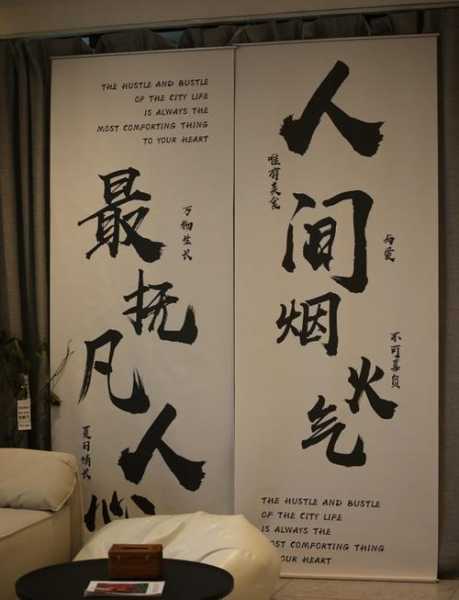 人间烟火气
唯有美食
与爱
不可辜负
THE HUSTLE AND BUSTLE
OF THE CITY LIFE
IS ALWAYS THE
MOST COMFORTING THING
YOUR HEART
THE HUSTLE AND BUSTLE
OF THE CITY LIFE
IS ALWAYS THE
MOST COMFORTING THING
TO YOUR HEART
最抚凡人心
万物生长
夏日